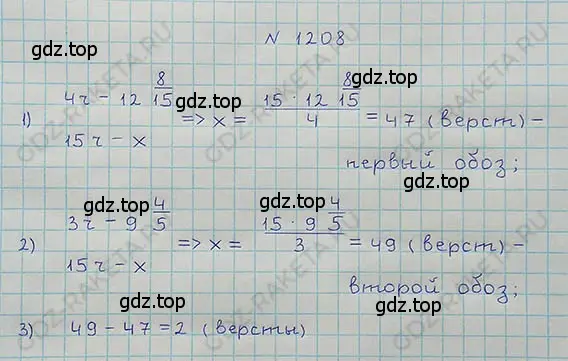 N 1208
1) 4ч – 12 8/15 => x = (15 · 12 8/15)/4 = 47 (верст) –
15ч – x
первый обоз;
2) 3ч – 9 4/5 => x = (15 · 9 4/5)/3 = 49 (верст) –
15ч – x
второй обоз;
3) 49 – 47 = 2 (версты)
gdz.top
gdz.top
gdz.top
gdz.top
gdz.top
gdz.top
gdz.top
gdz.top
GDZ-RAKETA.RU